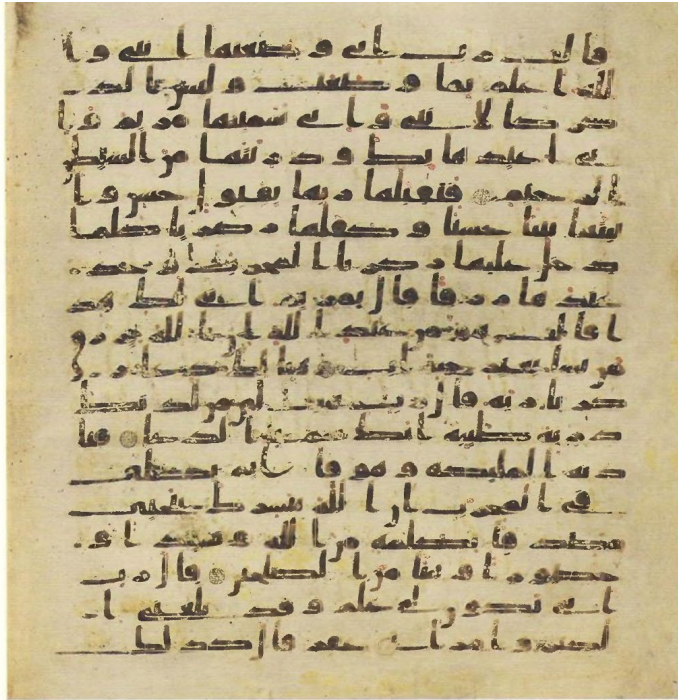 قالت رب انى وضعتها انثى و ا
لله اعلم بما وضعت و ليس الذ
كر كالانثى و انى سميتها مريم و ا
نى اعيذها بك و ذريتها من الشيطن
الرجيم فتقبلها ربها بقبول حسن و ا
نبتها نباتا حسنا و كفلها زكريا كلما
دخل عليها زكريا المحراب وجد
عندها رزقا قال يمريم انى لك هذ
ا قالت هو من عند الله ان الله يرزق
من يشا بغير حساب هنالك دعا ز
كريا ربه قال رب هب لى من لدنك
ذرية طيبة انك سميع الدعا فنا
دته الملئكة و هو قائم يصلى
فى المحراب ان الله يبشرك بيحيى
مصدقا بكلمة من الله و سيدا و
حصورا و نبيا من الصلحين قال رب
انى يكون لى غلم و قد بلغنى ا
لكبر و امراتى عاقر قال كذلك